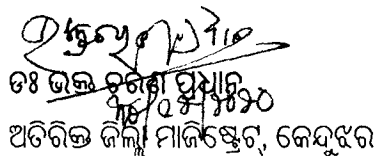 ଡଃ ଭକ୍ତ ଚରଣ ପ୍ରଧାନ
ଅତିରିକ୍ତ ଜିଲ୍ଲା ମାଜିଷ୍ଟ୍ରେଟ୍, କେନ୍ଦୁଝର